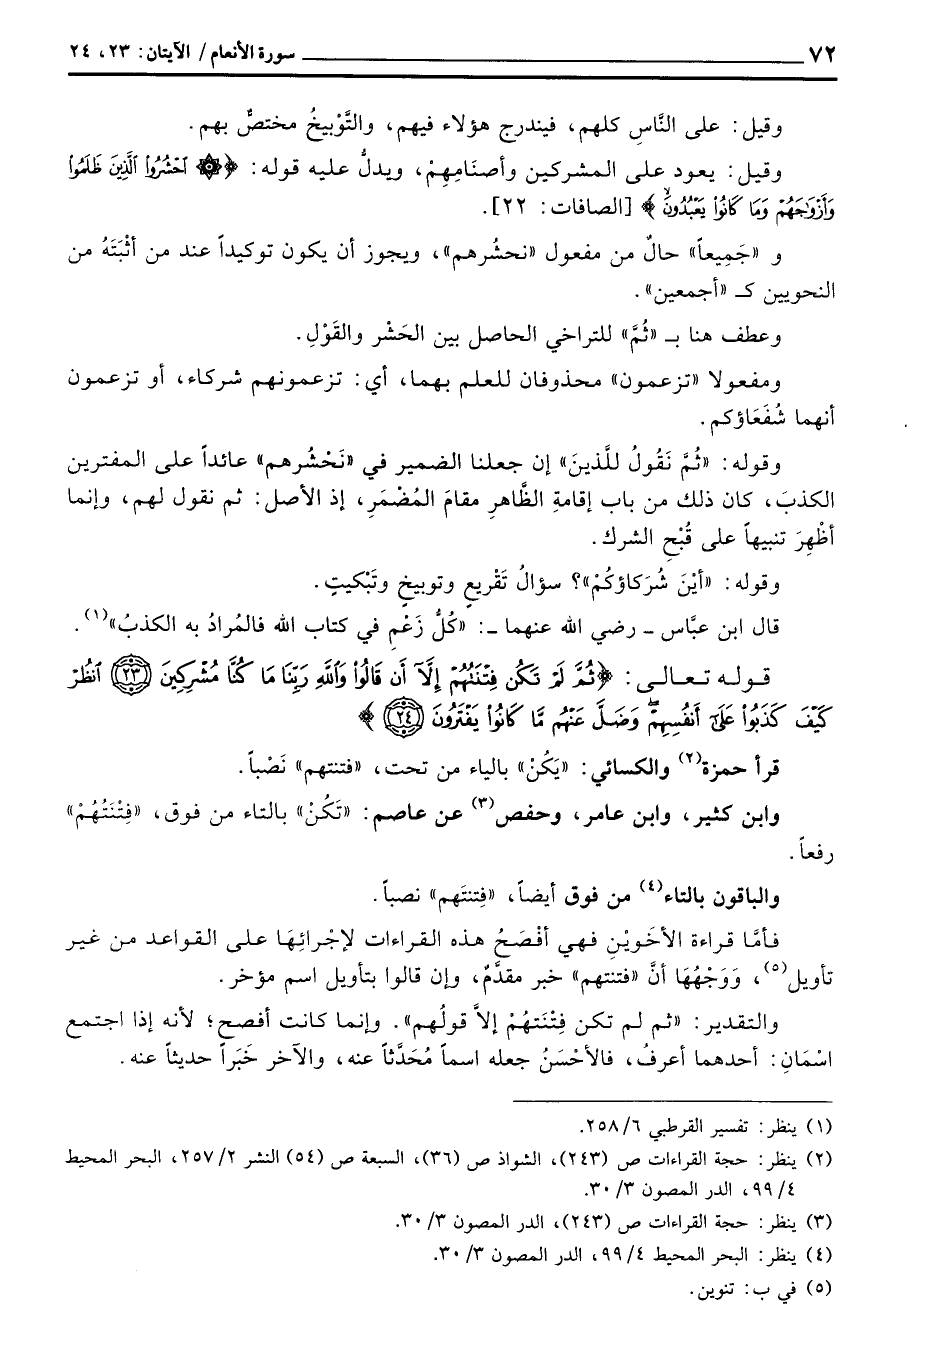 ٧٢ سورة الأنعام / الآيتان: ٢٣، ٢٤
وقيل: على النَّاسِ كلهم، فيندرج هؤلاء فيهم، والتَّوْبيخُ مختصٌّ بهم.
وقيل: يعود على المشركين وأصنَامِهِمْ، ويدلُّ عليه قوله: ﴿ٱحْشُرُوا۟ ٱلَّذِينَ ظَلَمُوا۟
وَأَزْوَٰجَهُمْ وَمَا كَانُوا۟ يَعْبُدُونَۙ﴾ [الصافات: ٢٢].
و «جَمِيعاً» حالٌ من مفعول «نحشُرهم»، ويجوز أن يكون توكيداً عند من أثْبَتَهُ من
النحويين كـ «أجمعين».
وعطف هنا بـ «ثُمَّ» للتراخي الحاصل بين الحَشْر والقَوْلِ.
ومفعولا «تزعمون» محذوفان للعلم بهما، أي: تزعمونهم شركاء، أو تزعمون
أنهما شُفَعَاؤكم.
وقوله: «ثُمَّ نَقُولُ للَّذينَ» إن جعلنا الضمير في «نَحْشُرهم» عائداً على المفترين
الكذبَ، كان ذلك من باب إقامةِ الظَّاهرِ مقامَ المُضْمَرِ، إذ الأصل: ثم نقول لهم، وإنما
أظْهِرَ تنبيهاً على قُبْحِ الشرك.
وقوله: «أيْنَ شُرَكاؤكُمْ»؟ سؤالُ تَقْريعٍ وتوبيخٍ وتَبْكيتٍ.
قال ابن عبَّاس ـ رضي الله عنهما ـ: «كُلُّ زَعْمٍ في كتاب الله فالمُرادُ به الكذبُ»(١).
قوله تعالى: ﴿ثُمَّ لَمْ تَكُن فِتْنَتُهُمْ إِلَّآ أَن قَالُوا۟ وَٱللَّهِ رَبِّنَا مَا كُنَّا مُشْرِكِينَ ٢٣ ٱنظُرْ
كَيْفَ كَذَبُوا۟ عَلَىٰٓ أَنفُسِهِمْۖ وَضَلَّ عَنْهُم مَّا كَانُوا۟ يَفْتَرُونَ ٢٤﴾
قرأ حمزة(٢) والكسائي: «يَكُنْ» بالياء من تحت، «فتنتهم» نَصْباً.
وابن كثير، وابن عامر، وحفص(٣) عن عاصم: «تَكُنْ» بالتاء من فوق، «فِتْنَتُهُمْ»
رفعاً.
والباقون بالتاء(٤) من فوق أيضاً، «فِتنتَهم» نصباً.
فأمَّا قراءة الأخَويْنِ فهي أفْصَحُ هذه القراءات لإجْرائِهَا على القواعد من غير
تأويل(٥)، وَوَجْهُهَا أنَّ «فتنتهم» خبر مقدَّمٌ، وإن قالوا بتأويل اسم مؤخر.
والتقدير: «ثم لم تكن فِتْنَتهُمْ إلاَّ قولُهم». وإنما كانت أفصح؛ لأنه إذا اجتمع
اسْمَانِ: أحدهما أعرفُ، فالأحْسَنُ جعله اسماً مُحَدَّثاً عنه، والآخر خَبَراً حديثاً عنه.
(١) ينظر: تفسير القرطبي ٦/ ٢٥٨.
(٢) ينظر: حجة القراءات ص (٢٤٣)، الشواذ ص (٣٦)، السبعة ص (٥٤) النشر ٢/ ٢٥٧، البحر المحيط
٤/ ٩٩، الدر المصون ٣/ ٣٠.
(٣) ينظر: حجة القراءات ص (٢٤٣)، الدر المصون ٣/ ٣٠.
(٤) ينظر: البحر المحيط ٤/ ٩٩، الدر المصون ٣/ ٣٠.
(٥) في ب: تنوين.